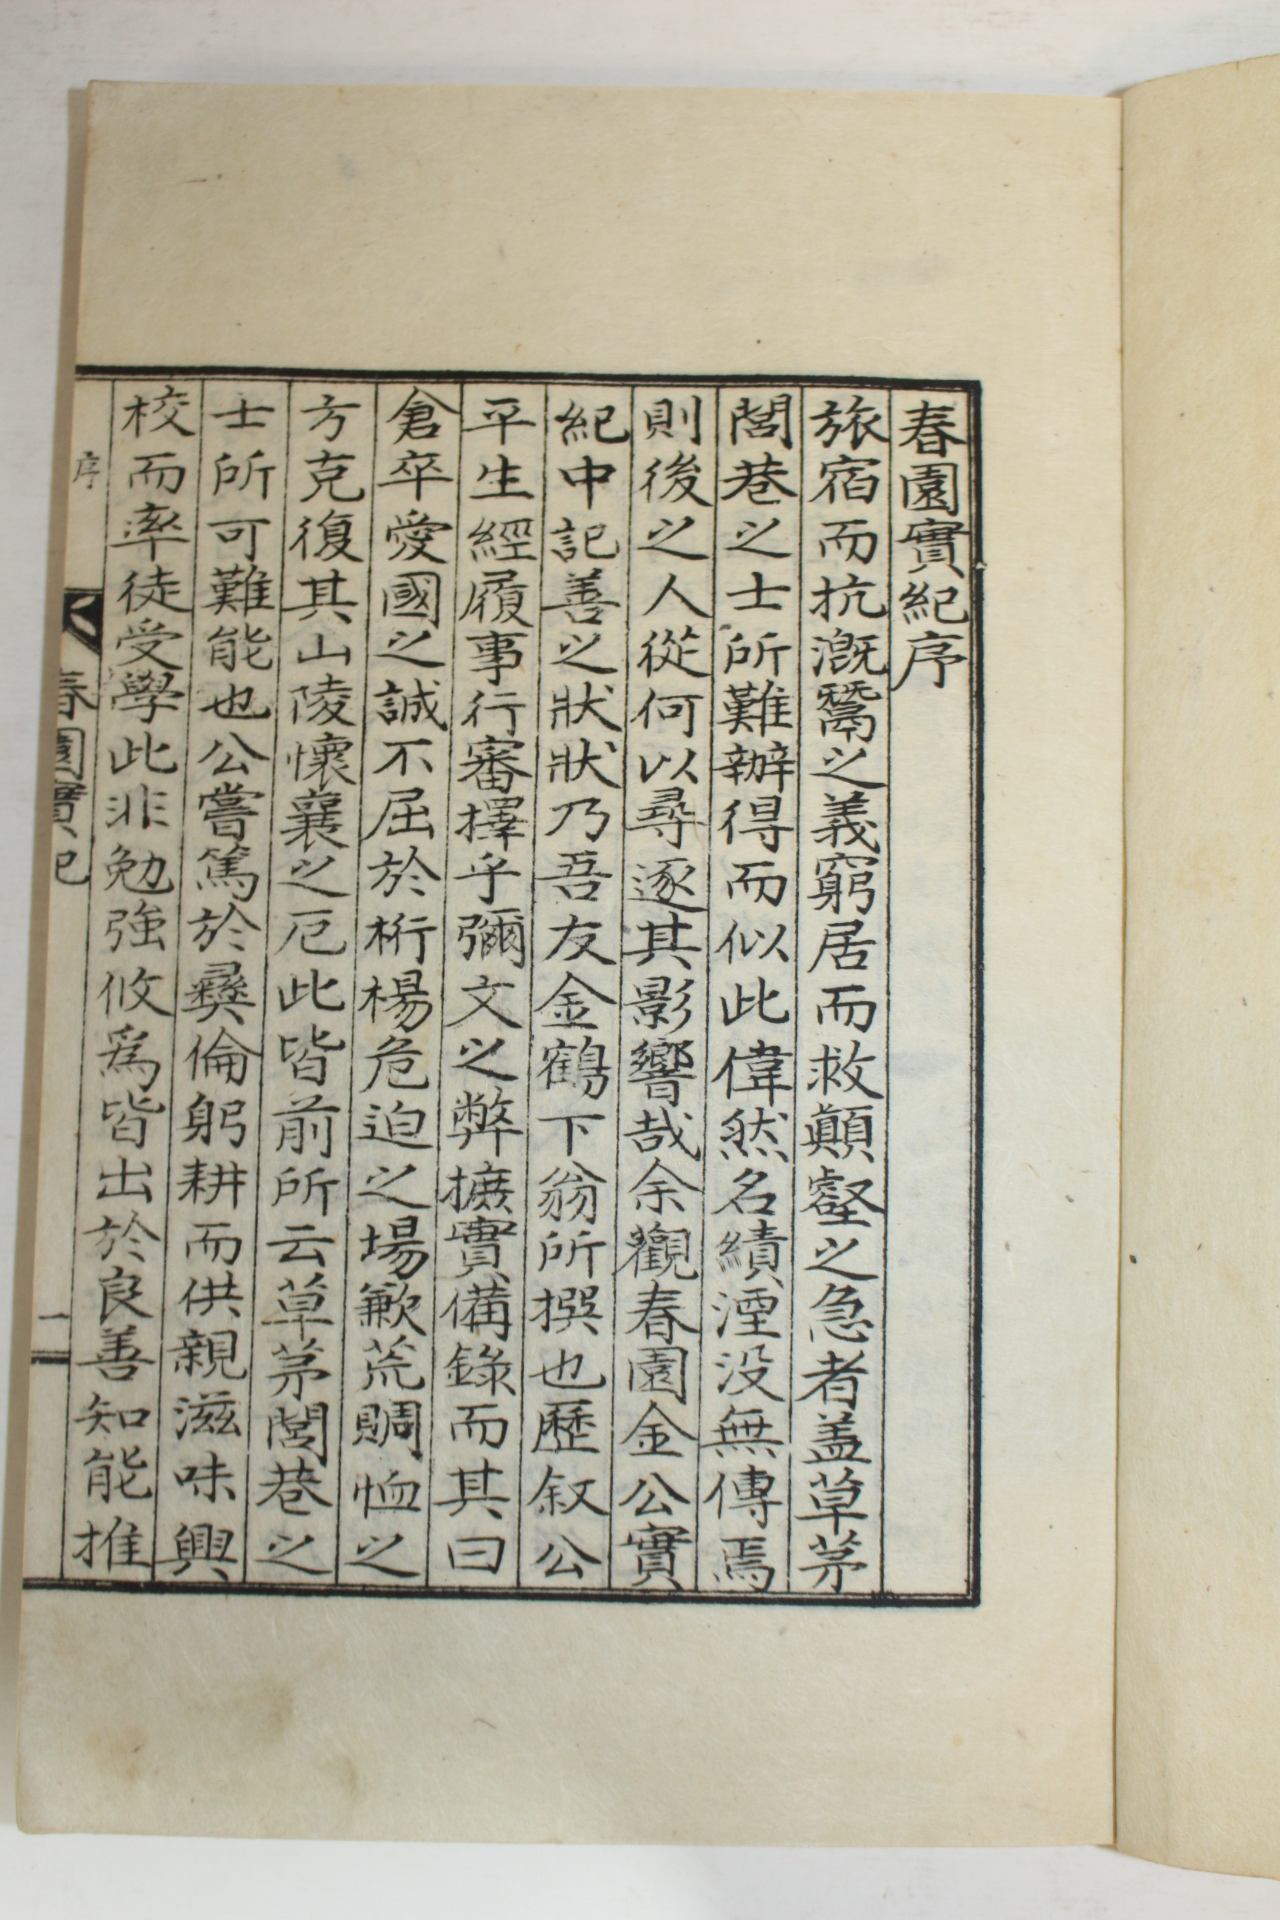 春園實紀序
旅宿而抗溉鬵之義窮居而救顚壑之急者盖草茅
閭巷之士所難辦得而似此偉然名績湮没無傳焉
則後之人從何以尋逐其影響哉余觀春園金公實
紀中記善之狀狀乃吾友金鶴下翁所撰也歷叙公
平生經履事行審擇乎彌文之弊摭實備錄而其曰
倉卒愛國之誠不屈於桁楊危迫之場歉荒賙恤之
方克復其山陵懷襄之厄此皆前所云草茅閭巷之
士所可難能也公嘗篤於彝倫躬耕而供親滋味興
校而率徒受學此非勉強攸爲皆出於良善知能推
序
春園實紀
一